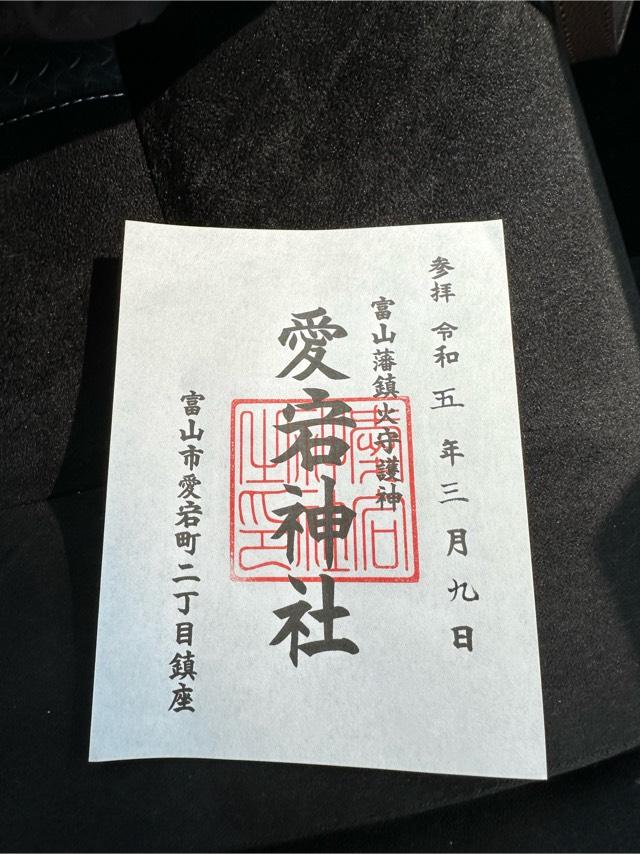 参拝 令和五年三月九日
富山藩鎮火守護神
愛宕神社
富山市愛宕町二丁目鎮座